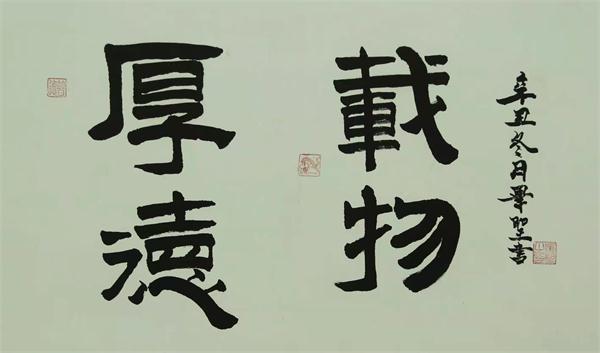 厚德
載物
辛丑冬月畢聖書